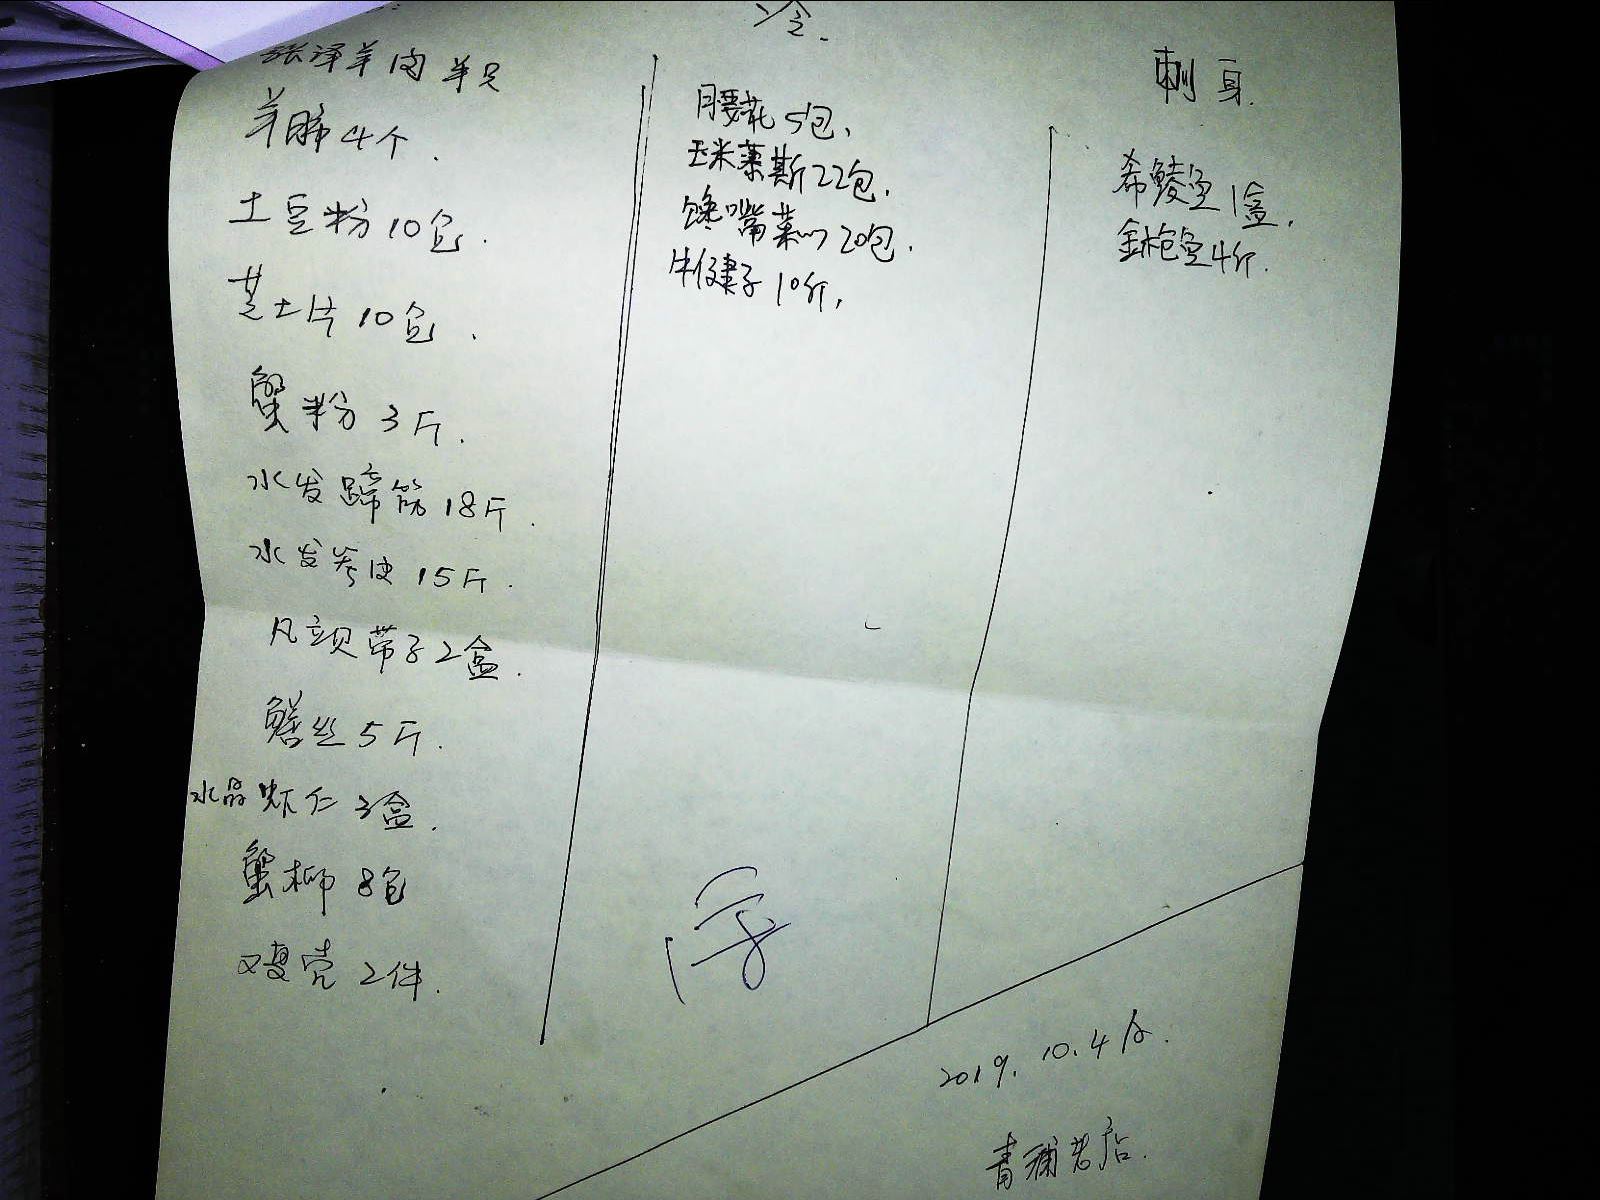 张泽羊肉 羊足
羊脚4个.
土豆粉10包.
芝士片10包.
蟹粉3斤.
水发蹄筋18斤.
水发参皮15斤.
凡立贝带子2盒.
鳝丝5斤.
水晶虾仁3盒.
蟹柳8包
叉壳2件.
冷.
月腰花5包,
玉米莱斯22包.
馋嘴菜心20包.
牛健子10斤,
刺身.
希鲮鱼1盒.
金枪鱼4斤.
2019.10.4份.
青浦老店.